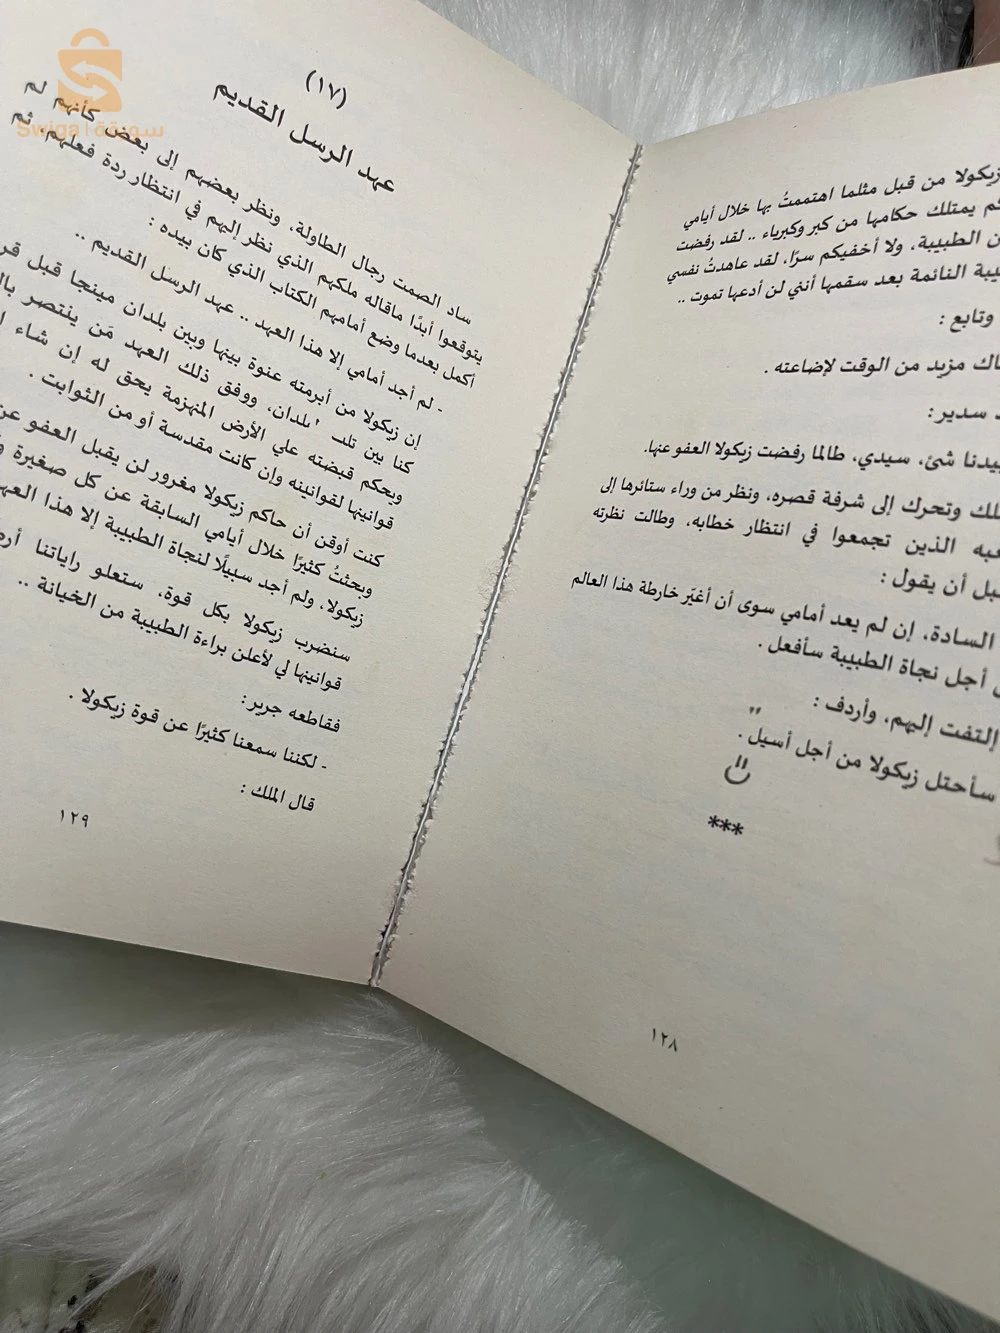 زيكولا من قبل مثلما اهتممتُ بها خلال أيامي
كم يمتلك حكامها من كبر وكبرياء .. لقد رفضت
الطبيبة، ولا أخفيكم سرًا، لقد عاهدتُ نفسي
النائمة بعد سقمها أنني لن أدعها تموت ..
وتابع :
مزيد من الوقت لإضاعته .
سدير :
بيدنا شئ، سيدي، طالما رفضت زيكولا العفو عنها.
وتحرك إلى شرفة قصره، ونظر من وراء ستائرها إلى
الذين تجمعوا في انتظار خطابه، وطالت نظرته
أن يقول :
السادة، إن لم يعد أمامي سوى أن أغيّر خارطة هذا العالم
أجل نجاة الطبيبة سأفعل .
إلتفت إليهم، وأردف :
سأحتل زيكولا من أجل أسيل .
***
١٢٨
(١٧)
عهد الرسل القديم
ساد الصمت رجال الطاولة، ونظر بعضهم إلى بعض كأنهم لم
يتوقعوا أبدًا ماقاله ملكهم الذي نظر إليهم في انتظار ردة فعلهم، ثم
أكمل بعدما وضع أمامهم الكتاب الذي كان بيده :
- لم أجد أمامي إلا هذا العهد .. عهد الرسل القديم ..
إن زيكولا من أبرمته عنوة بينها وبين بلدان مينجا قبل
كنا بين تلك البلدان، ووفق ذلك العهد مَن ينتصر
وبحكم قبضته علي الأرض المنهزمة يحق له إن شاء
قوانينها لقوانينه وإن كانت مقدسة أو من الثوابت .
كنت أوقن أن حاكم زيكولا مغرور لن يقبل العفو
وبحثتُ كثيرًا خلال أيامي السابقة عن كل صغيرة
زيكولا، ولم أجد سبيلًا لنجاة الطبيبة إلا هذا
سنضرب زيكولا بكل قوة، ستعلو راياتنا
قوانينها لي لأعلن براءة الطبيبة من الخيانة ..
فقاطعه جرير :
- لكننا سمعنا كثيرًا عن قوة زيكولا .
قال الملك :
١٢٩
Swiga | سويقة